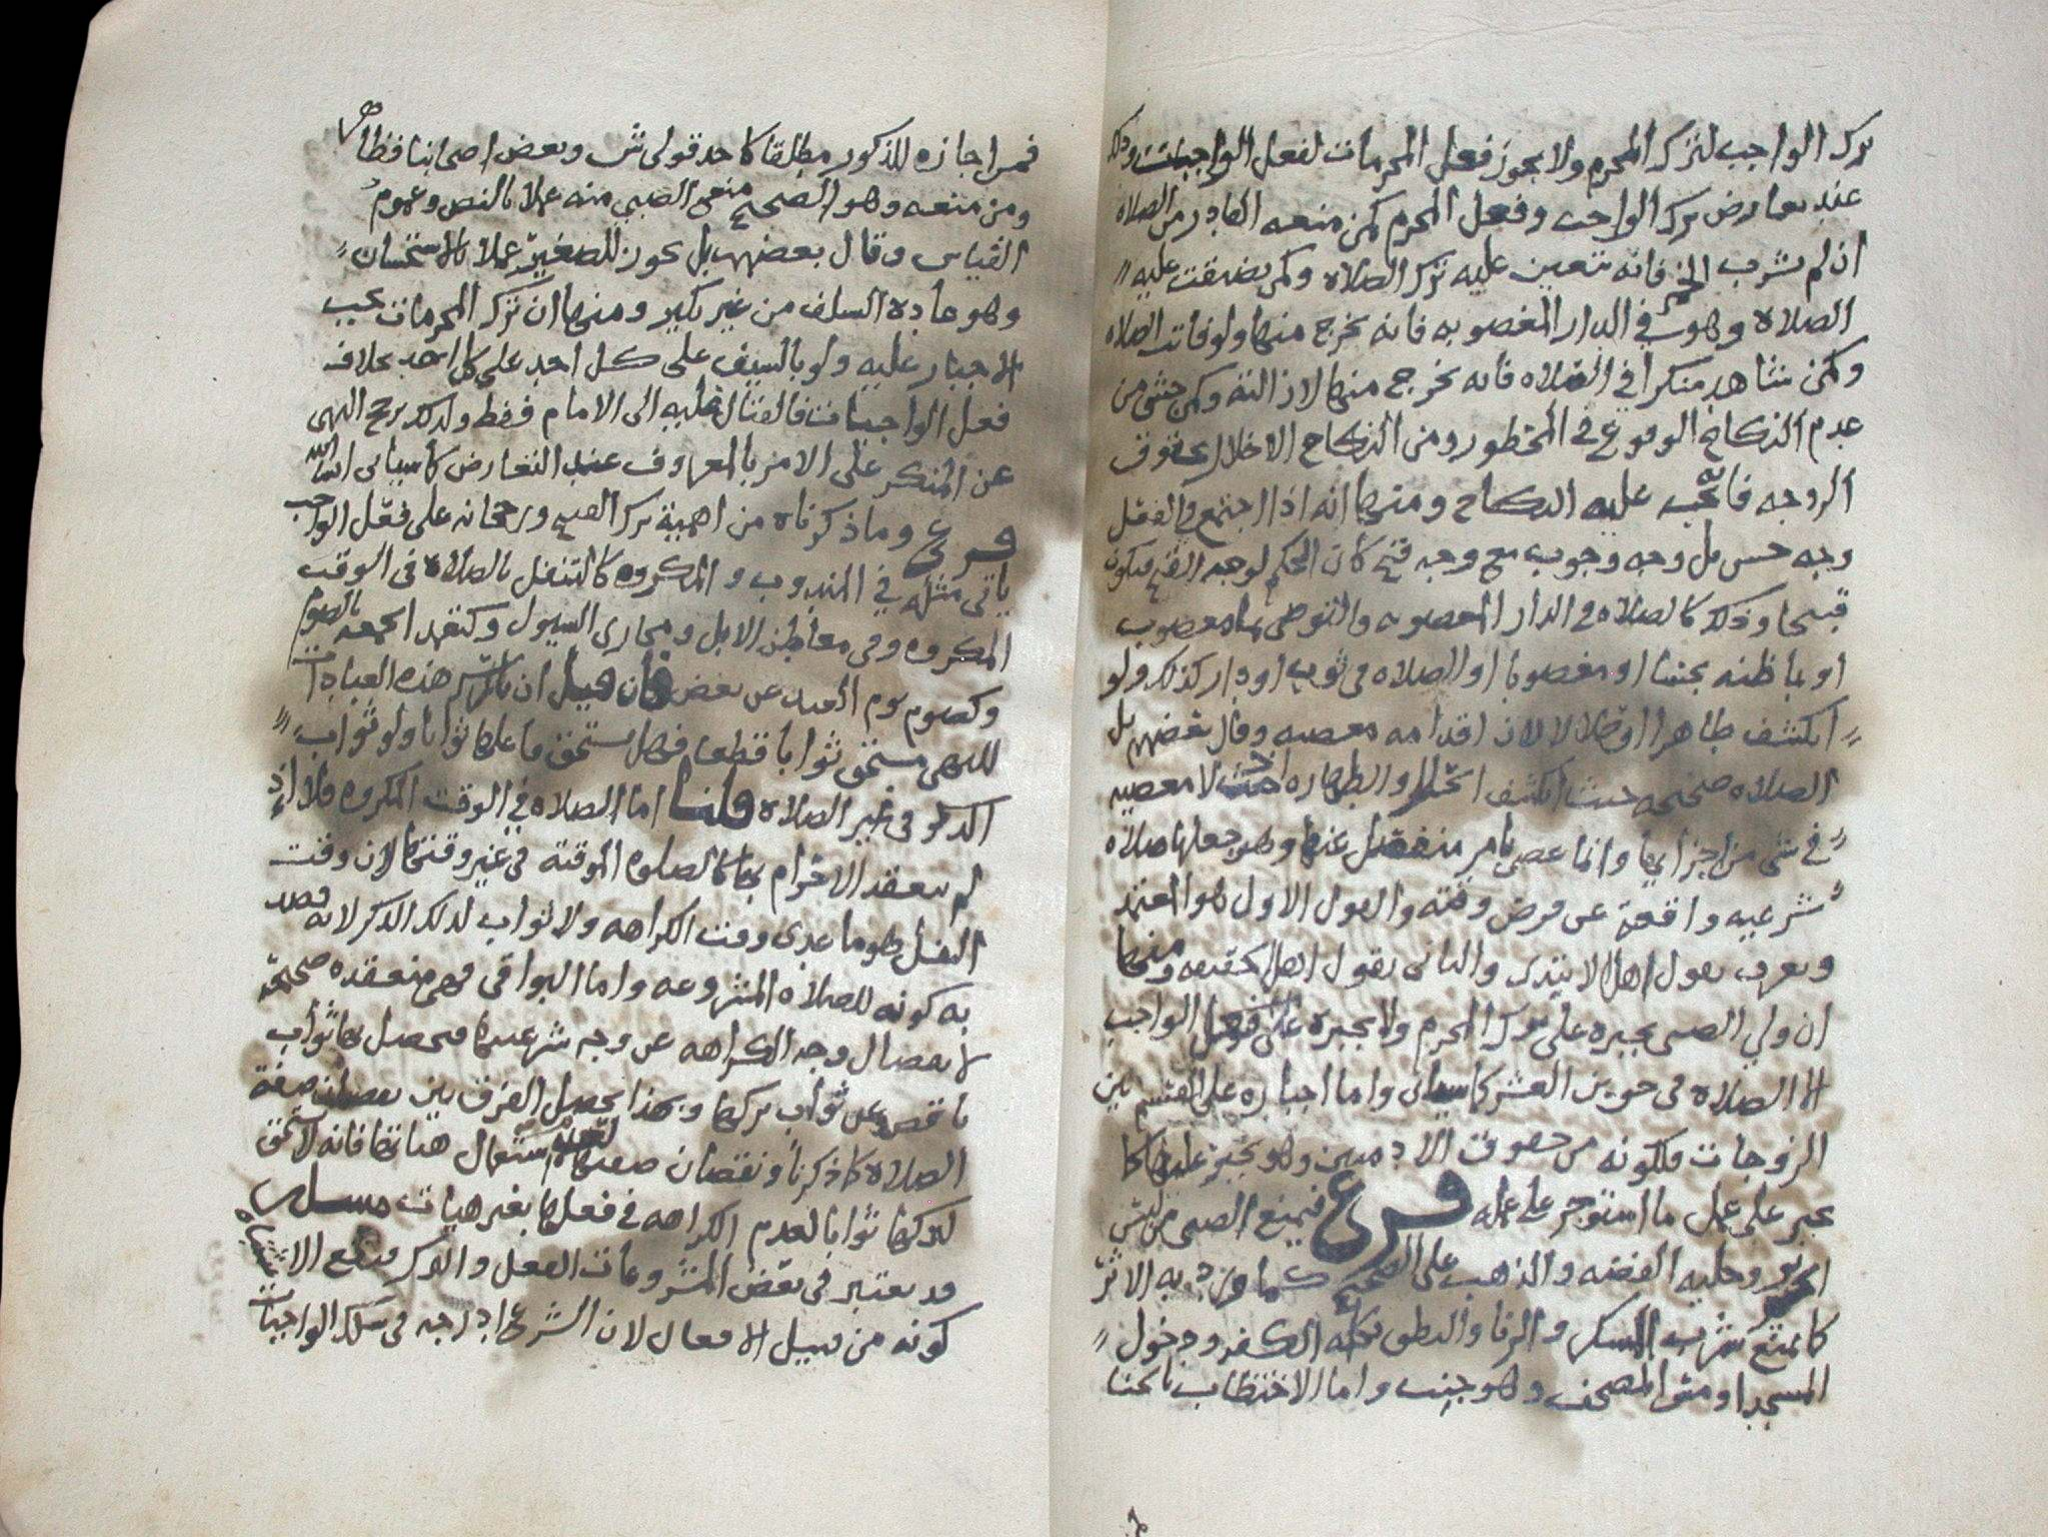 ترك الواجب لترك المحرم ولا يجوز فعل المحرمات لفعل الواجبات وذلك
عند تعارض ترك الواجب وفعل المحرم كمن منعه القادر من الصلاة
ان لم يشرب الخمر فانه يتعين عليه ترك الصلاة وكمن تضيقت عليه
الصلاة وهو في الدار المغصوبه فانه يخرج منها ولو فاتت الصلاه
وكمن شاهد منكرا في الصلاه فانه يخرج منها لازالته وكمن خشي من
عدم النكاح الوقوع في المحظور ومن النكاح الاخلال بحقوق
الزوجه فانه يجب عليه النكاح ومنها انه اذا اجتمع في الفعل
وجه حسن بل وجه وجوب مع وجه قبح كان الحكم لوجه القبح فيكون
قبيحا وذلك كالصلاه في الدار المغصوبه والتوضي بماء مغصوب
او بما ظنه نجسا او مغصوبا او الصلاه في ثوب او دار كذلك ولو
انكشف طاهرا او حلالا لان اقدامه معصيه وقال بعضهم بل
الصلاه صحيحه حيث انكشف الحل والطهاره اذ لا معصيه
في شي من اجزايها وانما عصى بامر منفصل عنها وهو جعلها صلاه
شرعيه واقعة عن فرض وقته والقول الاول هو المعتمد
ويعرف بقول اهل الابتدى والثاني بقول اهل الحقيقه ومنها
ان ولي الصبي يجبره على ترك المحرم ولا يجبره على فعل الواجب
الا الصلاة في حق بن العشر كما سياتي واما اجباره على القسم بين
الزوجات فلكونه من حقوق الادميين وهو يجبر عليها كما
يجبر على عمل ما استوجر على عمله فرع فيمنع الصبي من لبس
الحرير وحلية الفضه والذهب على الصحيح كما ورد به الاثر
كما يمنع شرب المسكر والزنا والنطق بكلمة الكفر ودخول
المسجد او مس المصحف وهو جنب واما الاختظاب بالحنا
فمن اجازه للذكور مطلقا كاحد قولي ش وبعض اصحابنا فظاهر
ومن منعه وهو الصحيح منع الصبي منه عملا بالنص وعموم
القياس وقال بعضهم بل يجوز للصغير عملا بالاستحسان
وهو عادة السلف من غير نكير ومنها ان ترك المحرمات يجب
الاجبار عليه ولو بالسيف على كل احد على كل احد بخلاف
فعل الواجبات فالقتال عليه الى الامام فقط ولذلك يرجح النهى
عن المنكر على الامر بالمعروف عند التعارض كما سياتي ان شا الله
فرع وما ذكرناه من اهمية ترك القبيح ورجحانه على فعل الواجب
ياتي مثله في المندوب والمكروه كالتنفل بالصلاة في الوقت
المكروه وفي معاطن الابل ومجاري السيول وكتعهد الجمعه بالصوم
وكصوم يوم العيد عن بعض فان قيل ان تارك هذه العبادات
للنهي مستحق ثوابا قطعا فهل يستحق فاعلها ثوابا ولو ثواب
الذكر في غير الصلاة قلنا اما الصلاه في الوقت المكروه فلا اذ
لم ينعقد الاحرام بها كالصلوه الموقتة في غير وقتها لان وقت
النفل هو ما عدى وقت الكراهه ولا ثواب لذلك الذكر لانه قصد
به كونه للصلاه المشروعه واما البواقي فهي منعقده صحيحة
لانفصال وجه الكراهه عن وجه شرعيتها فيحصل بها ثواب
ناقص عن ثواب تركها وبهذا يحصل الفرق بين نقصان صفة
الصلاة كما ذكرنا ونقصان صفتها لعدم استكمال هياتها فانه لا يستحق
لتركها ثوابا لعدم الكراهه في فعلها بغير هيات مسئله
قد يعتبر في بعض المشروعات الفعل والترك مع
كونه من قبيل الافعال لان الشرع ادرجه في سلك الواجبات